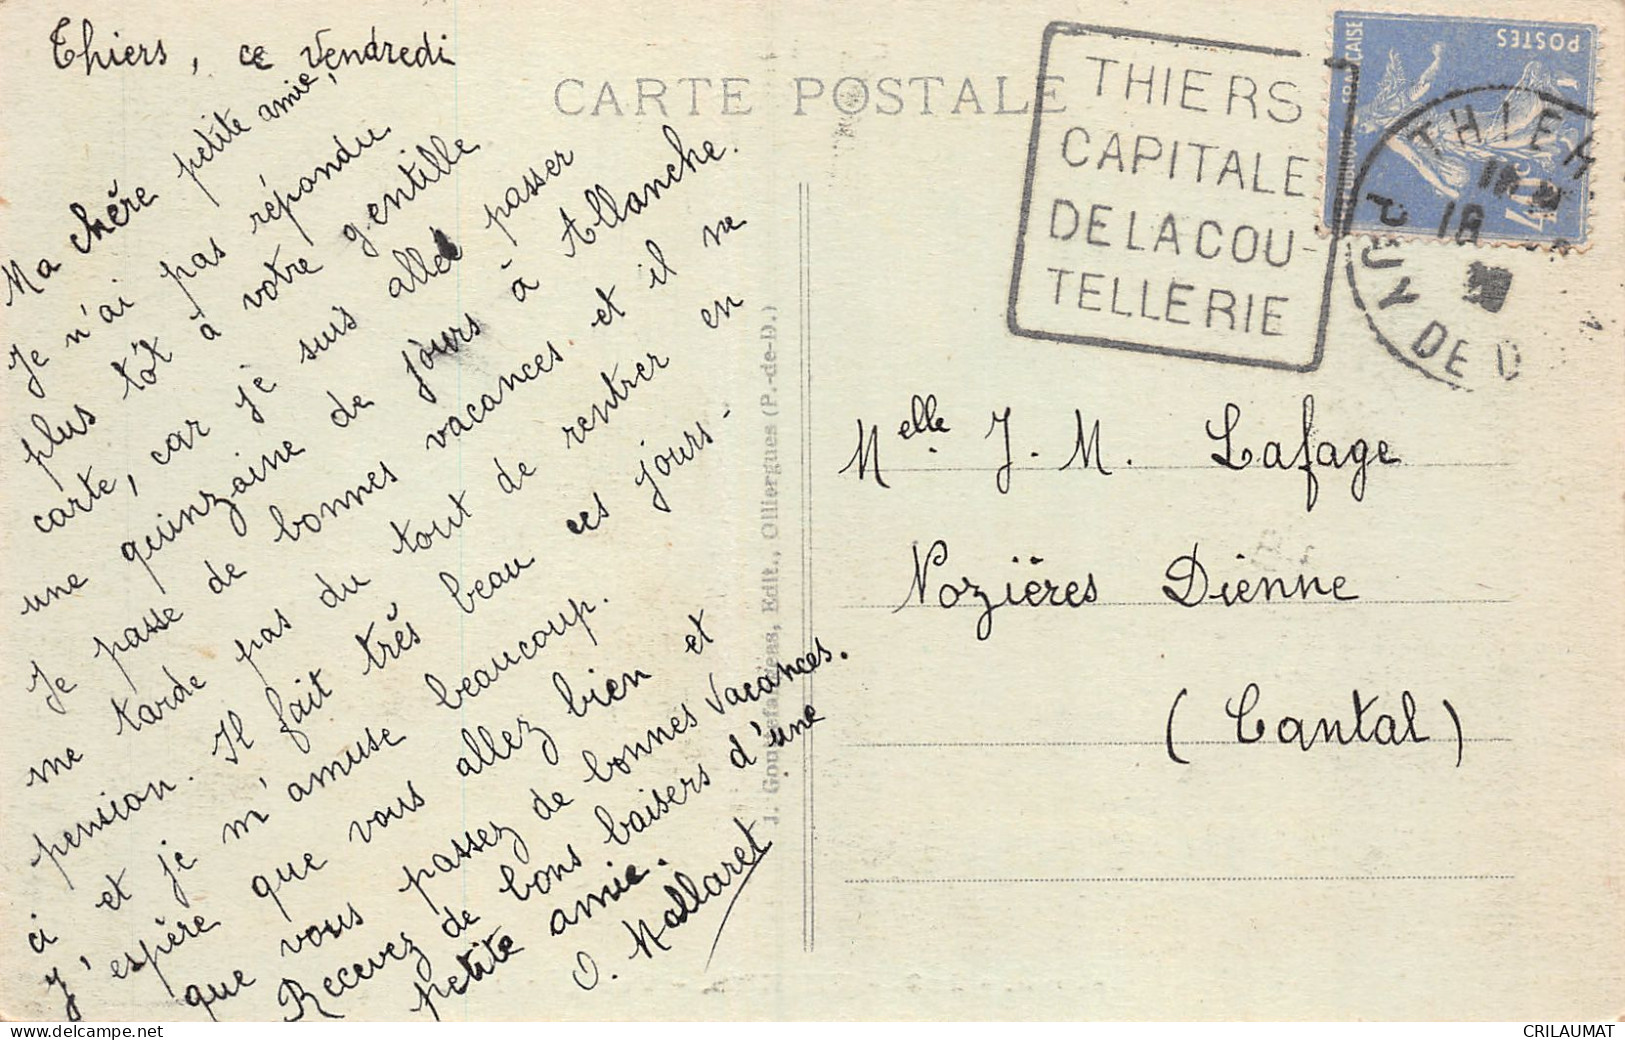 Thiers, ce Vendredi
CARTE POSTALE
Ma chère petite amie,
Je n'ai pas répondu
plus tôt à votre gentille
carte, car je suis allé passer
une quinzaine de jours à Allanche.
Je passe de bonnes vacances et il ne
me tarde pas du tout de rentrer en
pension. Il fait très beau ces jours-
ci et je m'amuse beaucoup.
J'espère que vous allez bien et
que vous passez de bonnes vacances.
Recevez de bons baisers d'une
petite amie.
O. Mallaret
J. Gouttefangeas, Edit., Olliergues (P.-de-D.)
THIERS
CAPITALE
DE LA COU-
TELLERIE
POSTES
THIERS
18
PUY DE D
Melle J. M. Lafage
Vozières Dienne
(Cantal)
CRILAUMAT
www.delcampe.net